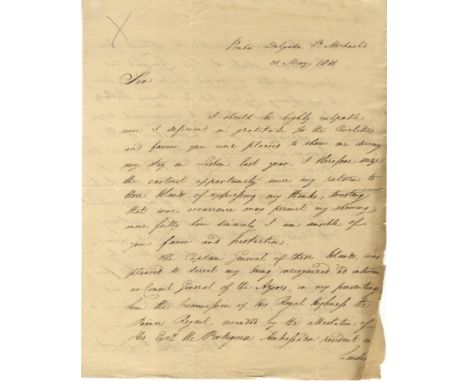 Ponta Delgada St. Michael's
21 May 1811
Sir,
I should be highly culpable
were I deficient in gratitude for the Civilities
and favor you were pleased to show me during
my stay in Lisbon last year. I therefore seize
the earliest opportunity since my return to
these Islands of expressing my thanks, trusting
that some occurrence may permit my showing
more fully how sincerely I am sensible of
your favor and protection.
The Captain General of these Islands, was
pleased to direct my being recognized ad interim
as Consul General of the Azores, on my presenting
him the Commission of His Royal Highness the
Prince Regent, seconded by the attestation of
His Excy. the Portuguese Ambassador resident in
London